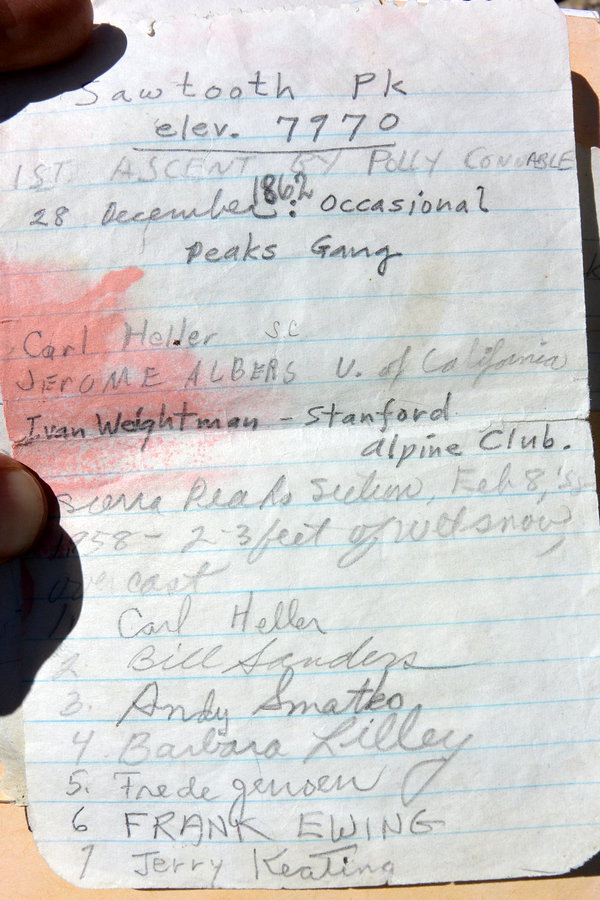 Sawtooth Pk
elev. 7970
1ST ASCENT BY POLLY CONNABLE
1862
28 December : Occasional
Peaks Gang
Carl Heller SC
JEROME ALBERS U. of California
Ivan Weightman - Stanford
Alpine Club.
Sierra Peaks Section, Feb 8, '58
1958 - 2-3 feet of wet snow,
overcast
1. Carl Heller
2. Bill Sanders
3. Andy Smatko
4 Barbara Lilley
5. Frede
6 FRANK EWING
7 Jerry Keating